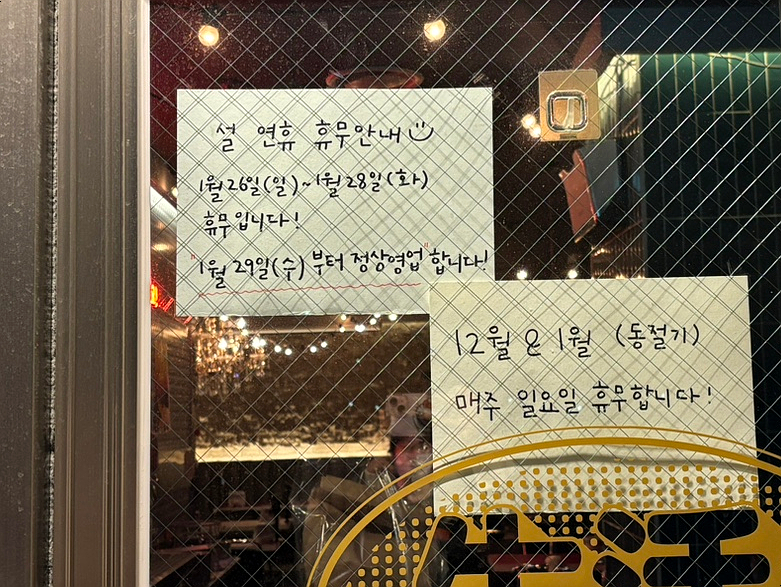 설 연휴 휴무안내
1월26일(일)~1월28일(화)
휴무입니다!
"1월 29일(수) 부터 정상영업"합니다!
12월 & 1월 (동절기)
매주 일요일 휴무합니다!